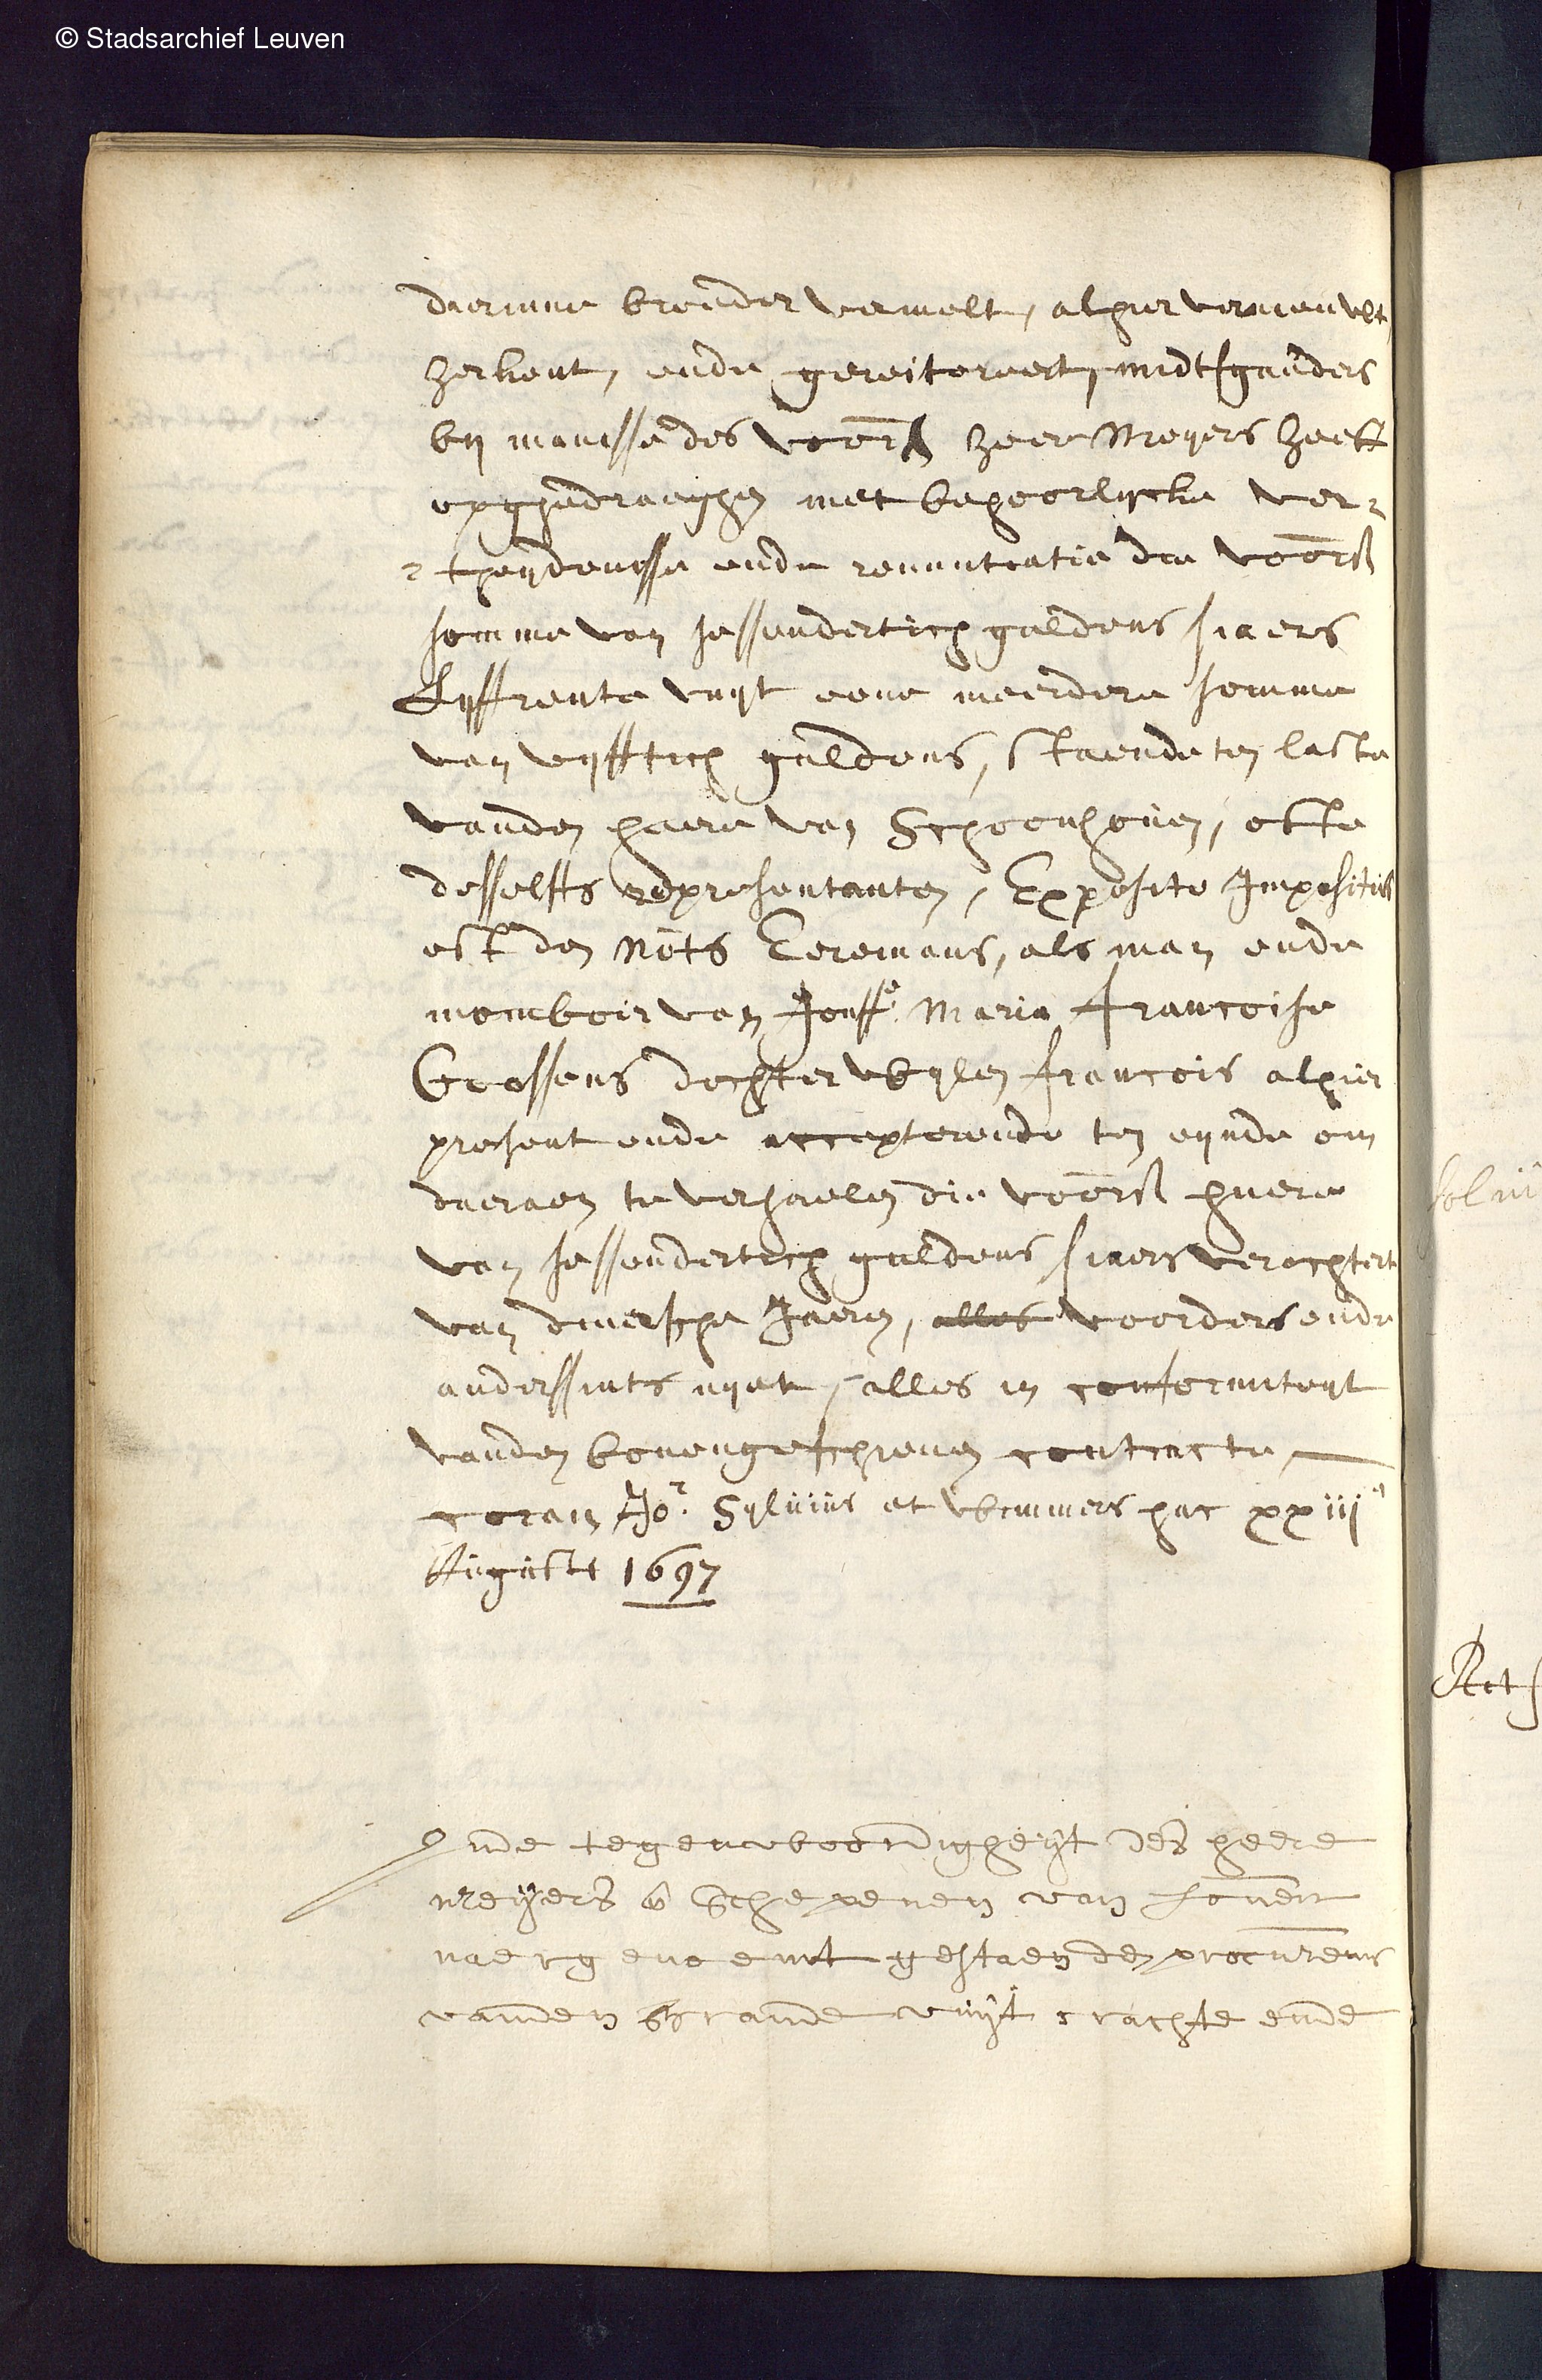 © Stadsarchief Leuven
daerinne breeder vermelt, alhier vernieuwt,
herkent, ende gereitereert, midtsgaeders
bij manisse des voors heer Meyers heeft
opghedraeghen met behoorlycke ver-
-theijdenisse ende renuntiatie die voors
somme van sessendertich guldens siaers
Lyffrente vuyt eene meerdere somme
van vyfftich guldens, staende ten laste
vanden heere van Schoonhoven, ofte
desselffs representanten, Exposito Impositus
est den Nots Eeremans, als man ende
momboir van Jouffe Maria Francoise
Goossens dochter wylen francois alhier
present ende accepterende ten eynde om
daeraen te verhaelen die voors huere
van sessendertich guldens siaers verachtert
van diversche Jaeren, alles voorders ende
anderssints nyet, alles in conformiteyt
vanden bovengeschreven contracte
coram Jor Sylvius et Wemmers hac xxiij
Augusti 1697
Inde tegenwoordigheyt des heere
meyers en Schepenen van Loven
naergenoemt gestaen den procureur
vanden Brande vuyt crachte ende
Act